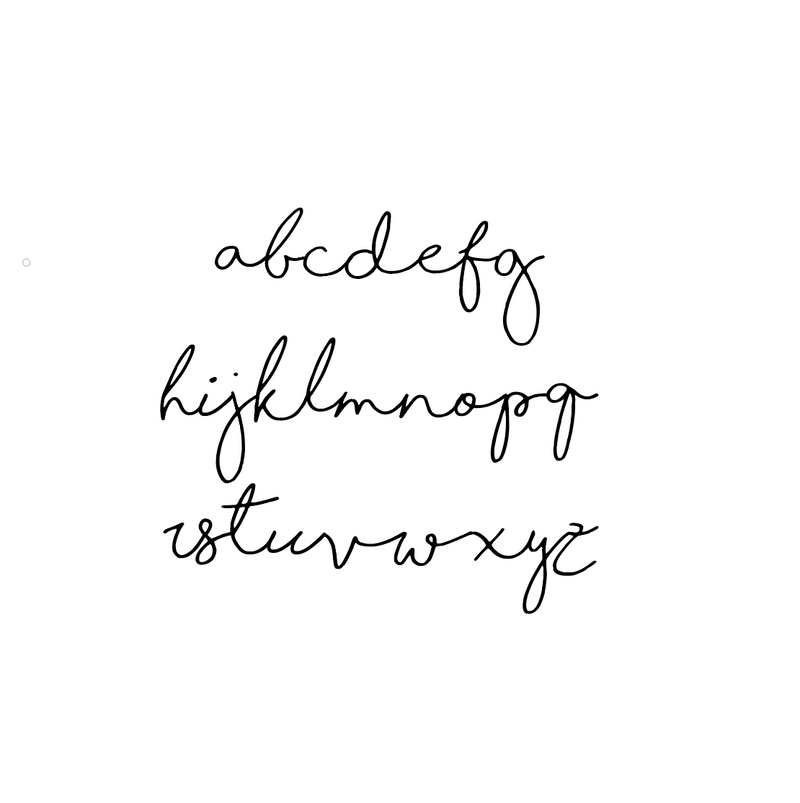 abcdefg
hijklmnopq
rstuvwxyz